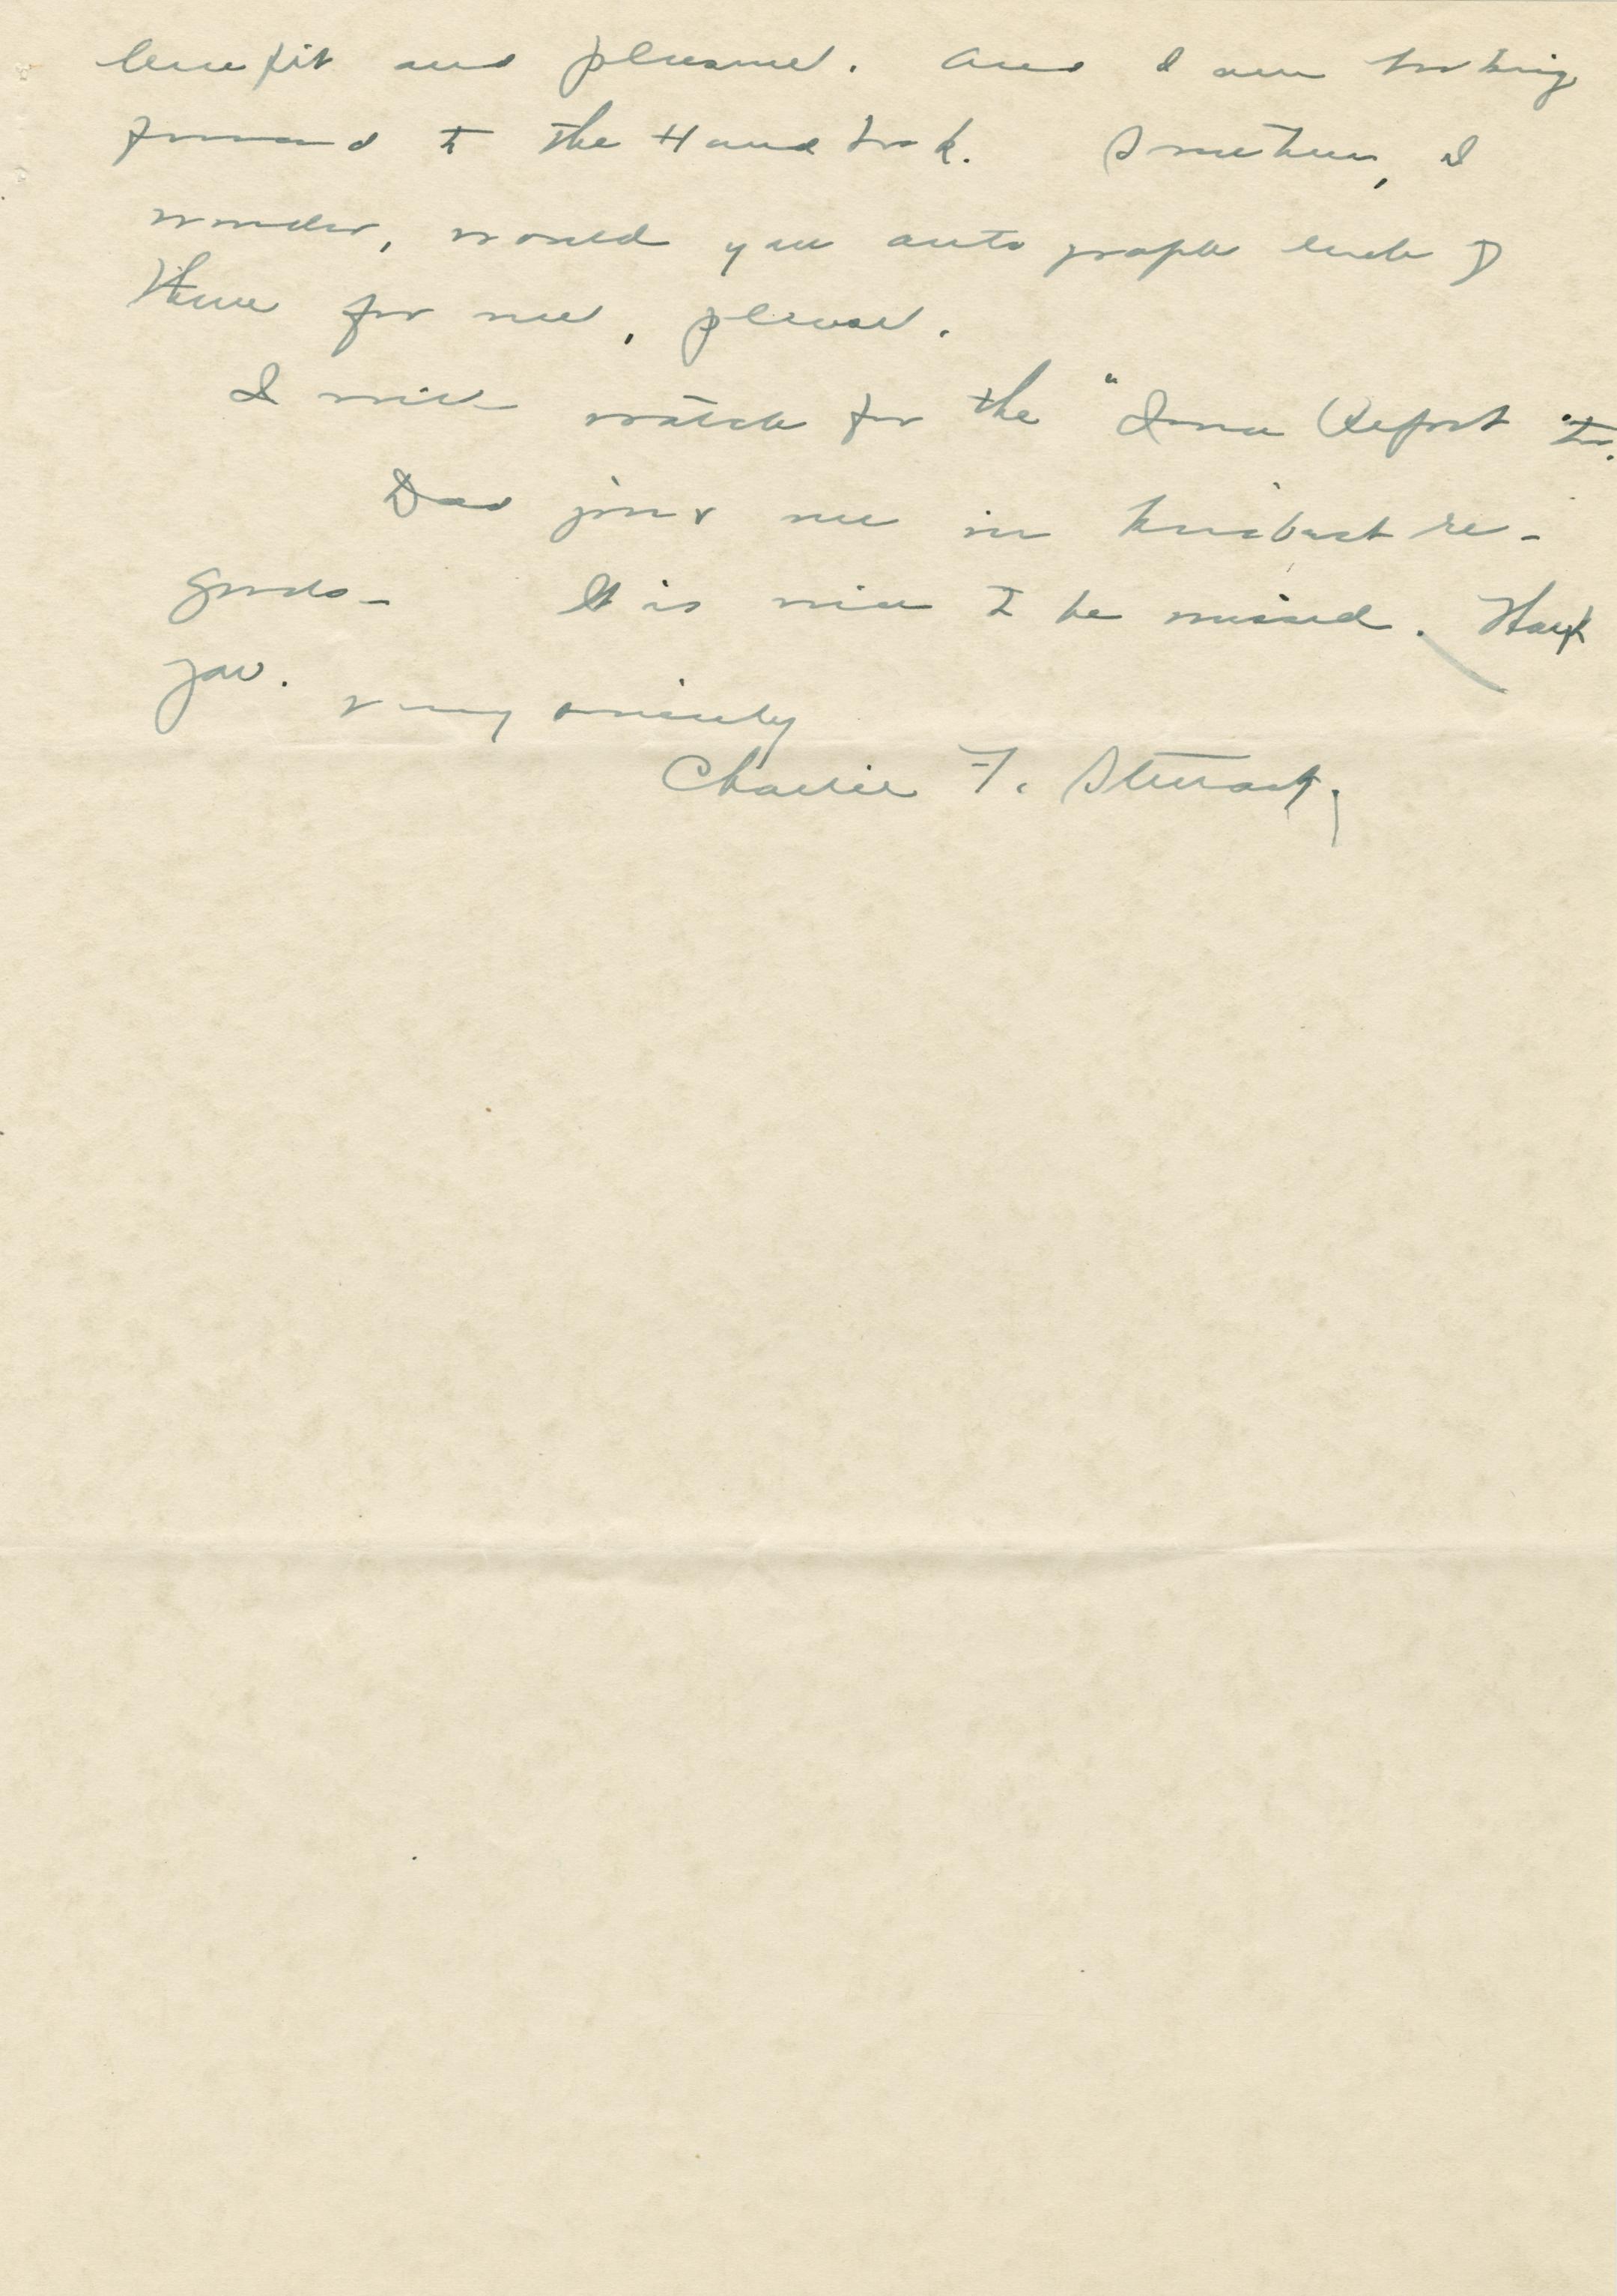 benefit and pleasure. And I am looking
forward to the Handbook. Sometime, I
wonder, would you autograph each of
them for me, please.
I will watch for the "Iowa Report" too.
Dad joins me in kindest re-
gards- It is nice to be missed. Thank
you.
Very sincerely
Charlie F. Stewart,